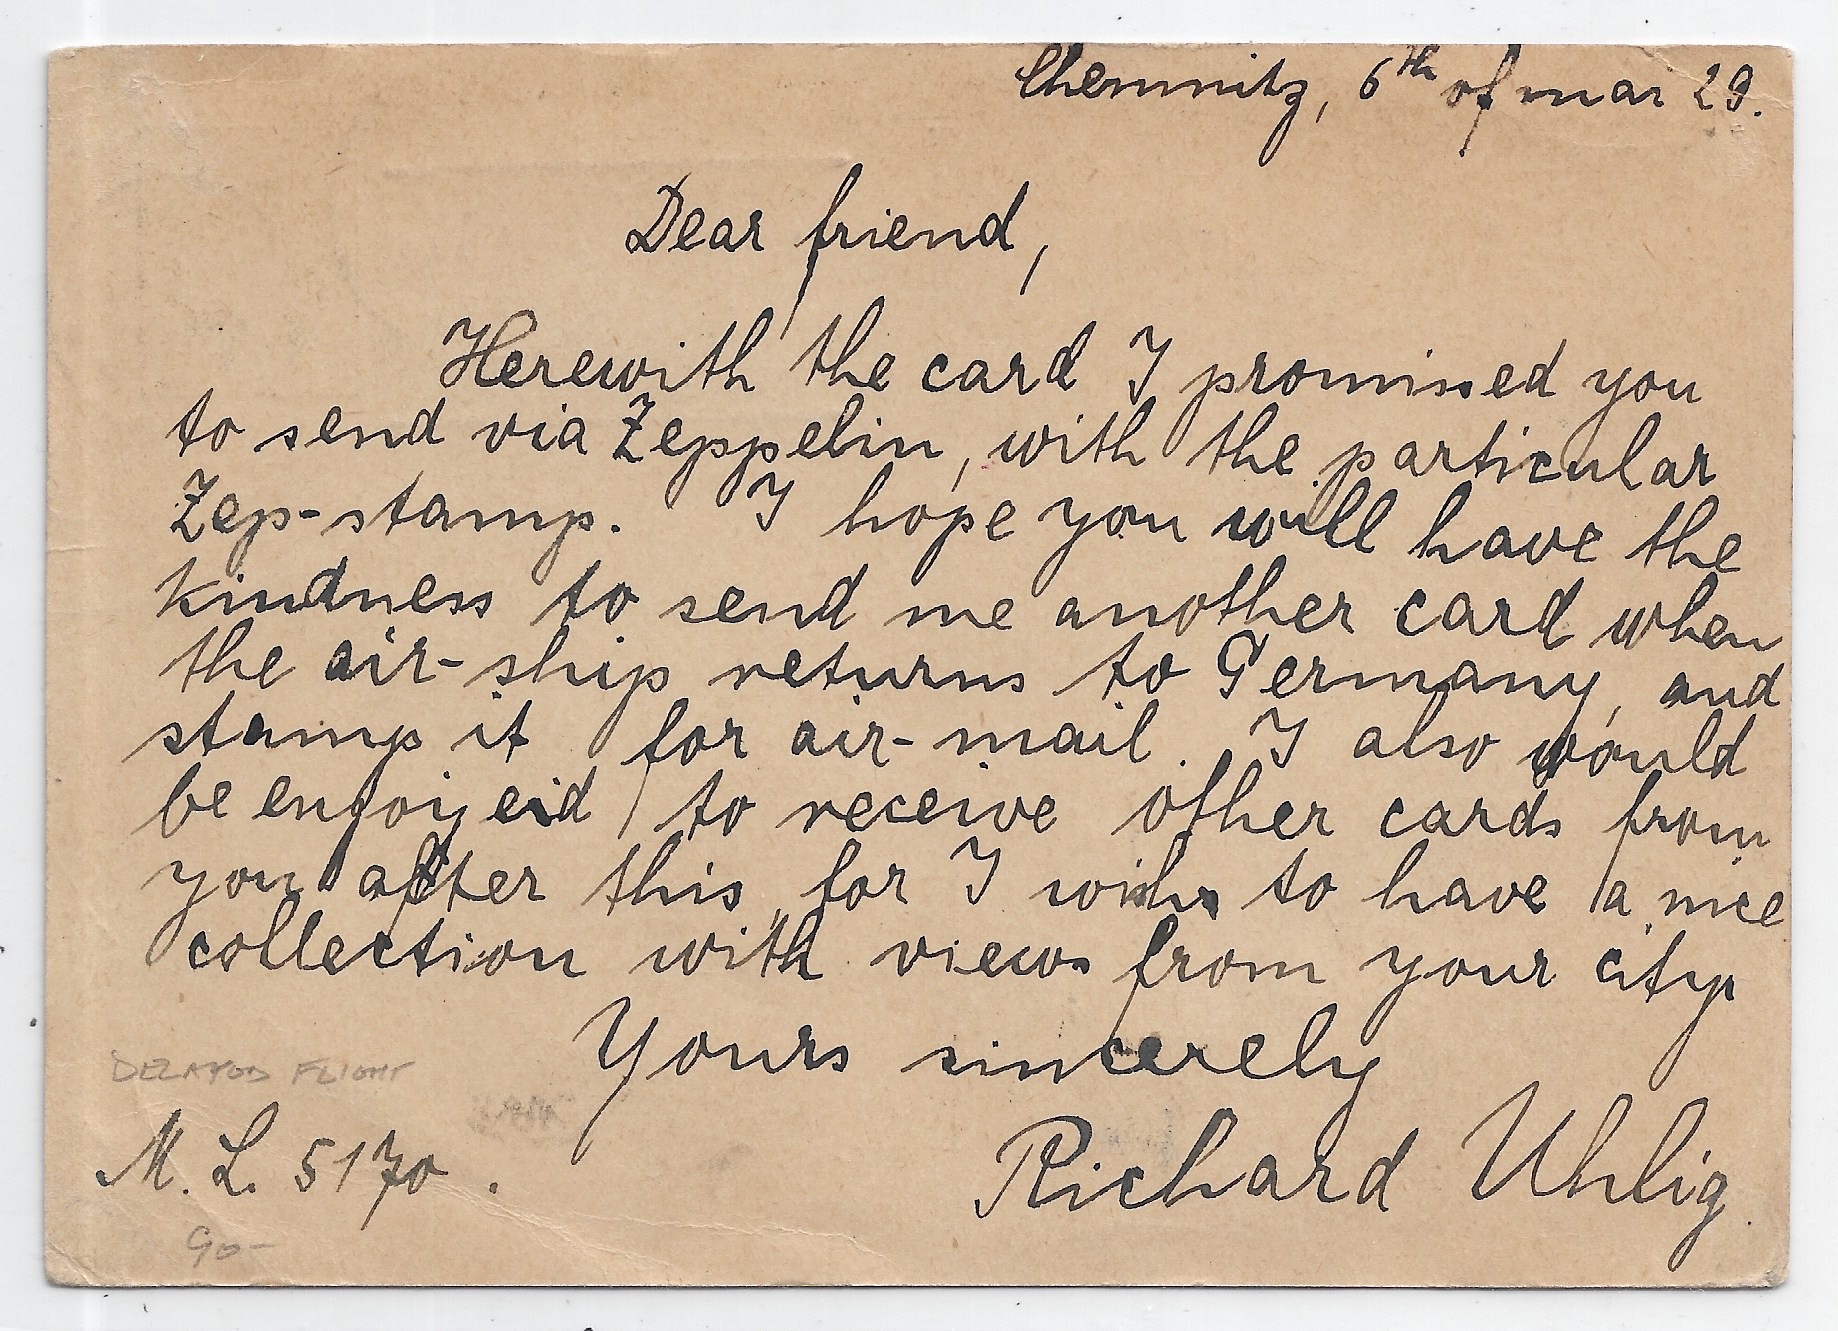 Chemnitz, 6th of mar 29.
Dear friend,
Herewith the card I promised you
to send via Zeppelin, with the particular
Zep-stamp. I hope you will have the
kindness to send me another card when
the air-ship returns to Germany, and
stamp it for air-mail. I also would
be enjoyeid to receive other cards from
you after this, for I wish to have a nice
collection with views from your city
Yours sincerely
DELAYED FLIGHT
M. L. 5170.
Richard Uhlig.
90-